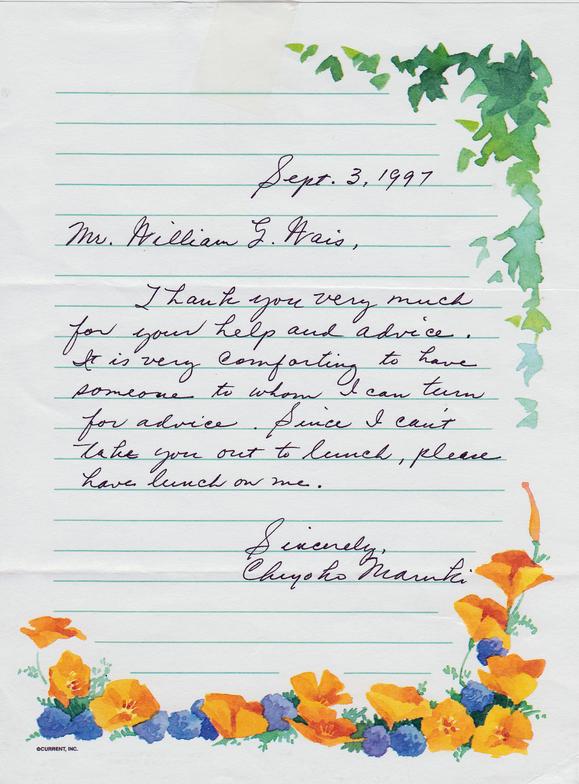 Sept. 3, 1997
Mr. William G. Wais,
Thank you very much
for your help and advice.
It is very comforting to have
someone to whom I can turn
for advice. Since I can't
take you out to lunch, please
have lunch on me.
Sincerely,
Chiyoko Maruki
©CURRENT, INC.